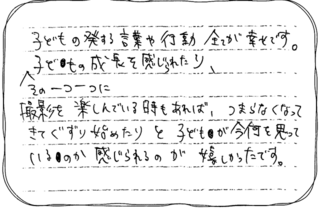 子どもの発する言葉や行動 全てが幸せです。
子どもの成長を感じられたり、
その一つ一つに
撮影を楽しんでいる時もあれば、つまらなくなって
きてぐずり始めたりと子どもが今何を思って
いるのか 感じられるのが 嬉しかったです。